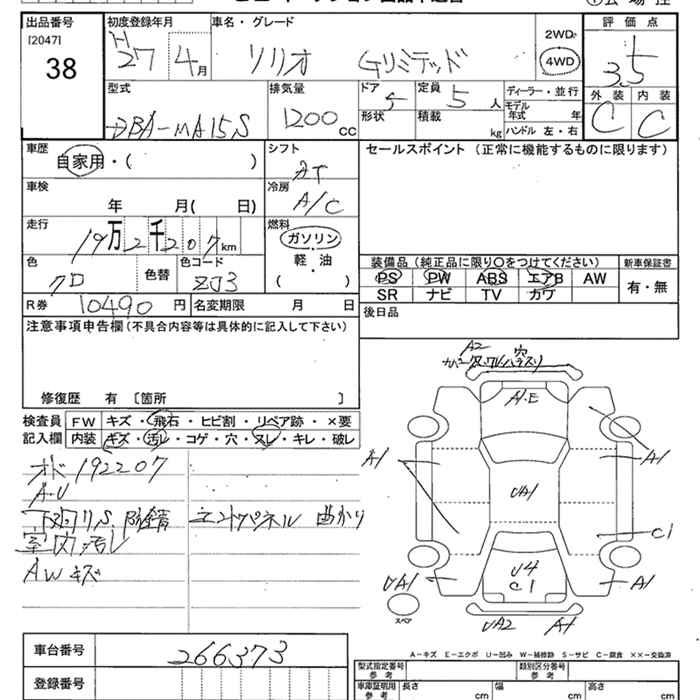 出品番号
[2047]
38
初度登録年月
H 27 4月
車名・グレード
ソリオ Gリミテッド
2WD
4WD
評価点
3.5
外装 内装
C C
型式
DBA-MA15S
排気量
1200 cc
ドア 5
形状
定員 5 人
積載 kg
ディーラー・並行
モデル年式 年
ハンドル 左・右
車歴
自家用・( )
シフト
AT
セールスポイント (正常に機能するものに限ります)
車検
年 月( 日)
冷房
A/C
走行
19万2千207km
燃料
ガソリン
軽・油
( )
色
クロ
色替
色コード
ZJ3
装備品 (純正品に限り〇をつけてください)
新車保証書
PS PW ABS エアB AW
SR ナビ TV カワ
有・無
R券 10490 円
名変期限 月 日
後日品
注意事項申告欄 (不具合内容等は具体的に記入して下さい)
修復歴 有 〔箇所 〕
検査員記入欄
FW キズ・飛石・ヒビ割・リペア跡・×要
内装 キズ・汚レ・コゲ・穴・スレ・キレ・破レ
オド192207
A・U
下廻りS 防錆
エンドパネル 曲がり
室内汚レ
AWキズ
A2
A・E
A1
A1
UA1
C1
U4
C1
UA1
A1
UA2 A1
スペア
A-キズ E-エクボ U-凹み W-補修跡 S-サビ C-腐食 ××-交換済
車台番号
266373
登録番号
型式指定番号
参考
類別区分番号
参考
車庫証明用
参考
長さ cm
幅 cm
高さ cm